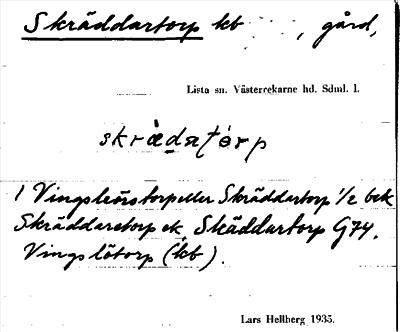 Skräddartorp kb , gård,
Lista sn. Västerrekarne hd. Sdml. l.
skrädatorp
1 Vingsleörstorp eller Skräddartorp 1/2 bek
Skräddaretorp ek, Skäddartorp G74.
Vingslötorp (kb).
Lars Hellberg 1935.